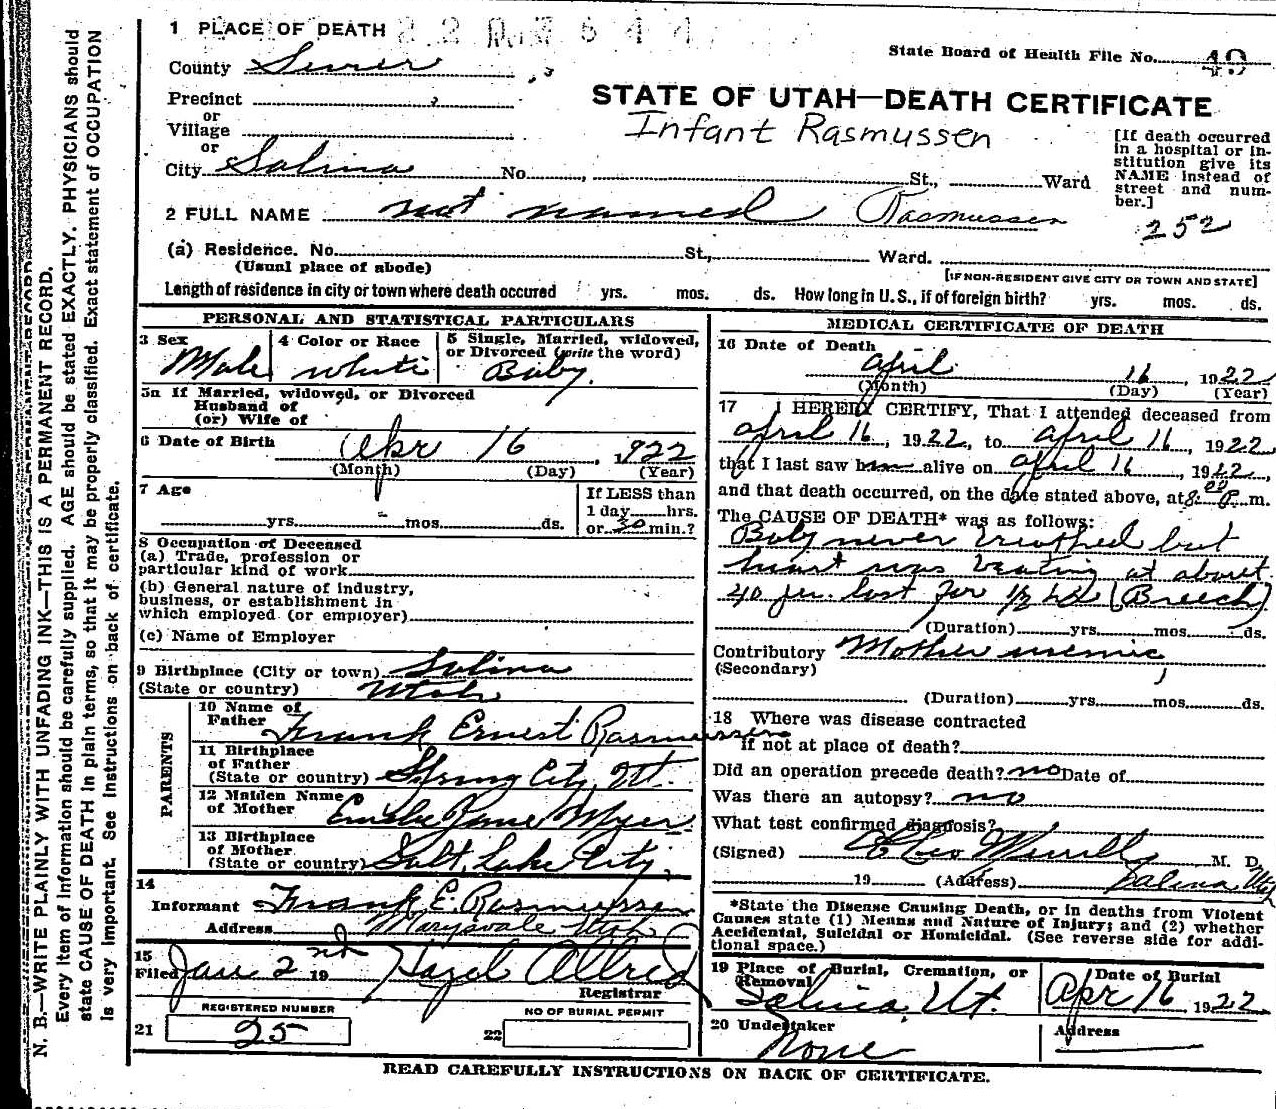 1 PLACE OF DEATH
State Board of Health File No. 49
County Sevier
Precinct
or
Village
or
STATE OF UTAH—DEATH CERTIFICATE
Infant Rasmussen
City Salina No. St., Ward
[If death occurred in a hospital or institution give its NAME instead of street and number.]
252
2 FULL NAME not named Rasmussen
(a) Residence. No. St., Ward.
(Usual place of abode)
[IF NON-RESIDENT GIVE CITY OR TOWN AND STATE]
Length of residence in city or town where death occured yrs. mos. ds. How long in U. S., if of foreign birth? yrs. mos. ds.
PERSONAL AND STATISTICAL PARTICULARS
3 Sex Male
4 Color or Race white
5 Single, Married, widowed, or Divorced (write the word) Baby.
5a If Married, widowed, or Divorced
Husband of
(or) Wife of
6 Date of Birth Apr 16, 922
(Month) (Day) (Year)
7 Age
yrs. mos. ds.
If LESS than
1 day hrs.
or 30 min.?
8 Occupation of Deceased
(a) Trade, profession or
particular kind of work
(b) General nature of industry,
business, or establishment in
which employed (or employer)
(c) Name of Employer
9 Birthplace (City or town) Salina
(State or country) Utah
PARENTS
10 Name of
Father Frank Ernest Rasmussen
11 Birthplace
of Father
(State or country) Spring City, Ut.
12 Maiden Name
of Mother Jane
13 Birthplace
of Mother
(State or country) Salt Lake City
14
Informant Frank E. Rasmussen
Address Marysvale Utah
15
Filed Jan 2nd 19 Hazel Allred
Registrar
REGISTERED NUMBER
21 25
NO OF BURIAL PERMIT
22
MEDICAL CERTIFICATE OF DEATH
16 Date of Death
April 16, 1922
(Month) (Day) (Year)
17 I HEREBY CERTIFY, That I attended deceased from
April 16, 1922, to April 16 1922
that I last saw him alive on April 16, 1922,
and that death occurred, on the date stated above, at 8:00 P. m.
The CAUSE OF DEATH* was as follows:
Baby never breathed but
heart was beating at about
40 for 1/2 (Breech)
(Duration) yrs. mos. ds.
Contributory Mother
(Secondary)
(Duration) yrs. mos. ds.
18 Where was disease contracted
if not at place of death?
Did an operation precede death? no Date of
Was there an autopsy? no
What test confirmed diagnosis?
(Signed) Merrill, M. D.
19 (Address) Salina, Utah
*State the Disease Causing Death, or in deaths from Violent
Causes state (1) Means and Nature of Injury; and (2) whether
Accidental, Suicidal or Homicidal. (See reverse side for addi-
tional space.)
19 Place of Burial, Cremation, or
Removal
Salina, Ut.
Date of Burial
Apr 16 1922
20 Undertaker
None
Address
READ CAREFULLY INSTRUCTIONS ON BACK OF CERTIFICATE.
N. B.—WRITE PLAINLY WITH UNFADING INK—THIS IS A PERMANENT RECORD.
Every item of information should be carefully supplied. AGE should be stated EXACTLY. PHYSICIANS should
state CAUSE OF DEATH in plain terms, so that it may be properly classified. Exact statement of OCCUPATION
is very important. See instructions on back of certificate.